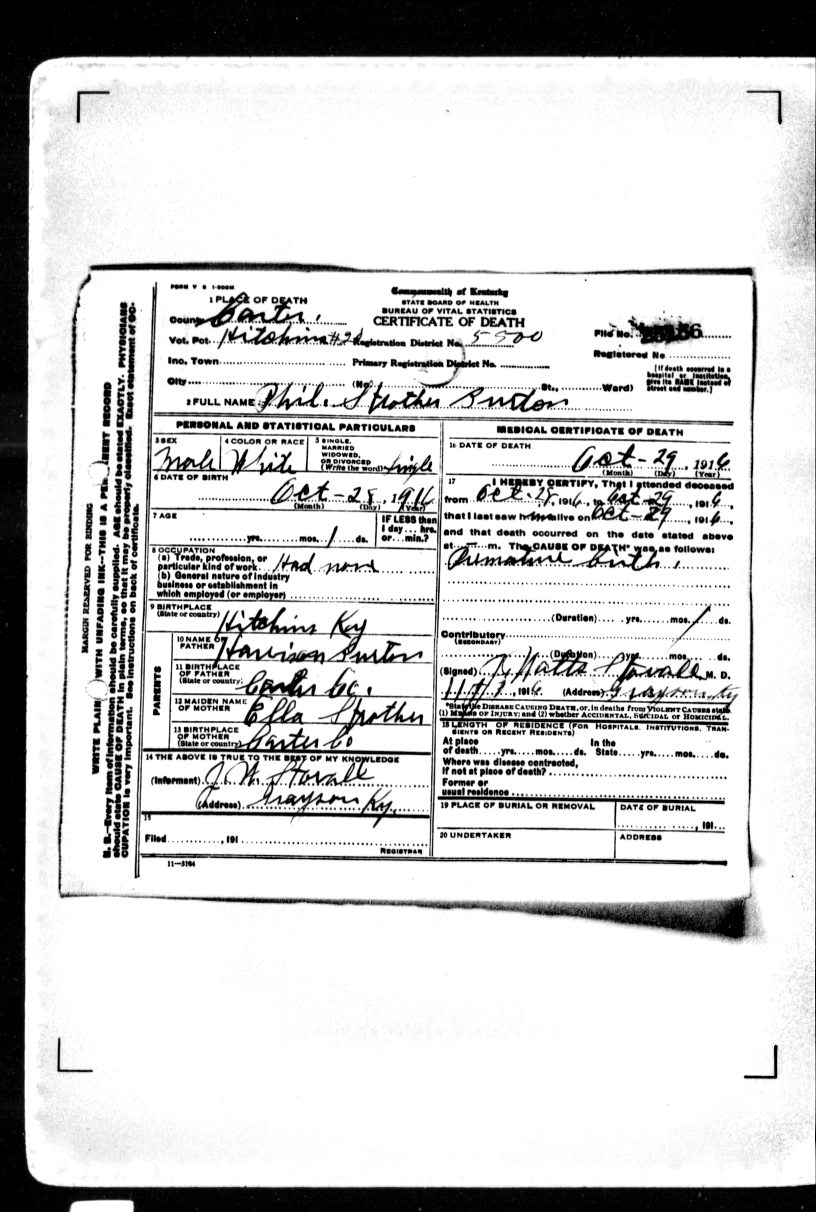 FORM V S 1-500M
Commonwealth of Kentucky
STATE BOARD OF HEALTH
BUREAU OF VITAL STATISTICS
CERTIFICATE OF DEATH
1 PLACE OF DEATH
County Carter.
Vot. Pct. Hitchins #20 Registration District No. 5500
File No.
Registered No
Inc. Town Primary Registration District No.
[If death occurred in a hospital or institution, give its NAME instead of street and number.]
City (No. St., Ward)
2 FULL NAME Phil. Strother Burton
PERSONAL AND STATISTICAL PARTICULARS
3 SEX Male
4 COLOR OR RACE White
5 SINGLE, MARRIED WIDOWED, OR DIVORCED (Write the word) Single
6 DATE OF BIRTH
Oct-28, 1916
(Month) (Day) (Year)
7 AGE
yrs. mos. 1 ds.
IF LESS than 1 day... hrs. or... min.?
8 OCCUPATION
(a) Trade, profession, or
particular kind of work Had none
(b) General nature of industry
business or establishment in
which employed (or employer)
9 BIRTHPLACE
(State or country) Hitchins Ky
PARENTS
10 NAME OF FATHER Harrison Burton
11 BIRTHPLACE OF FATHER (State or country) Carter Co.
12 MAIDEN NAME OF MOTHER Ella Strother
13 BIRTHPLACE OF MOTHER (State or country) Carter Co
14 THE ABOVE IS TRUE TO THE BEST OF MY KNOWLEDGE
(Informant) J. W. Stovall
(Address) Grayson Ky.
15
Filed , 191
REGISTRAR
11—3184
MEDICAL CERTIFICATE OF DEATH
16 DATE OF DEATH
Oct-29, 1916
(Month) (Day) (Year)
17 I HEREBY CERTIFY, That I attended deceased
from Oct-28, 1916, to Oct-29, 1916,
that I last saw him alive on Oct-29, 1916,
and that death occurred on the date stated above
at m. The CAUSE OF DEATH* was as follows:
Premature birth.
(Duration) yrs. mos. 1 ds.
Contributory
(SECONDARY)
(Duration) yrs. mos. ds.
(Signed) Watts Stovall, M. D.
, 1916. (Address) Grayson Ky
*State the DISEASE CAUSING DEATH, or, in deaths from VIOLENT CAUSES state
(1) MEANS OF INJURY; and (2) whether ACCIDENTAL, SUICIDAL or HOMICIDAL.
18 LENGTH OF RESIDENCE (FOR HOSPITALS, INSTITUTIONS, TRANSIENTS OR RECENT RESIDENTS)
At place of death yrs. mos. ds. In the State yrs. mos. ds.
Where was disease contracted,
if not at place of death?
Former or
usual residence
19 PLACE OF BURIAL OR REMOVAL
DATE OF BURIAL
, 191
20 UNDERTAKER
ADDRESS
MARGIN RESERVED FOR BINDING
WRITE PLAINLY WITH UNFADING INK—THIS IS A PERMANENT RECORD
N. B.—Every item of information should be carefully supplied. AGE should be stated EXACTLY. PHYSICIANS
should state CAUSE OF DEATH in plain terms, so that it may be properly classified. Exact statement of OC-
CUPATION is very important. See instructions on back of certificate.